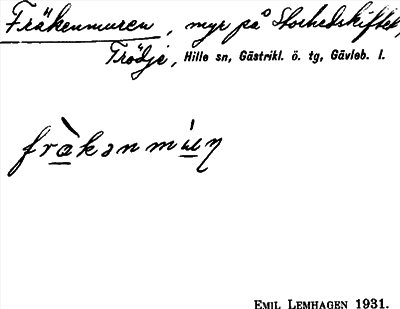 Fräkenmuren, myr på Storhedskiftet,
Trödje, Hille sn, Gästrikl. ö. tg, Gävleb. l.
fràkənmúɳ
EMIL LEMHAGEN 1931.